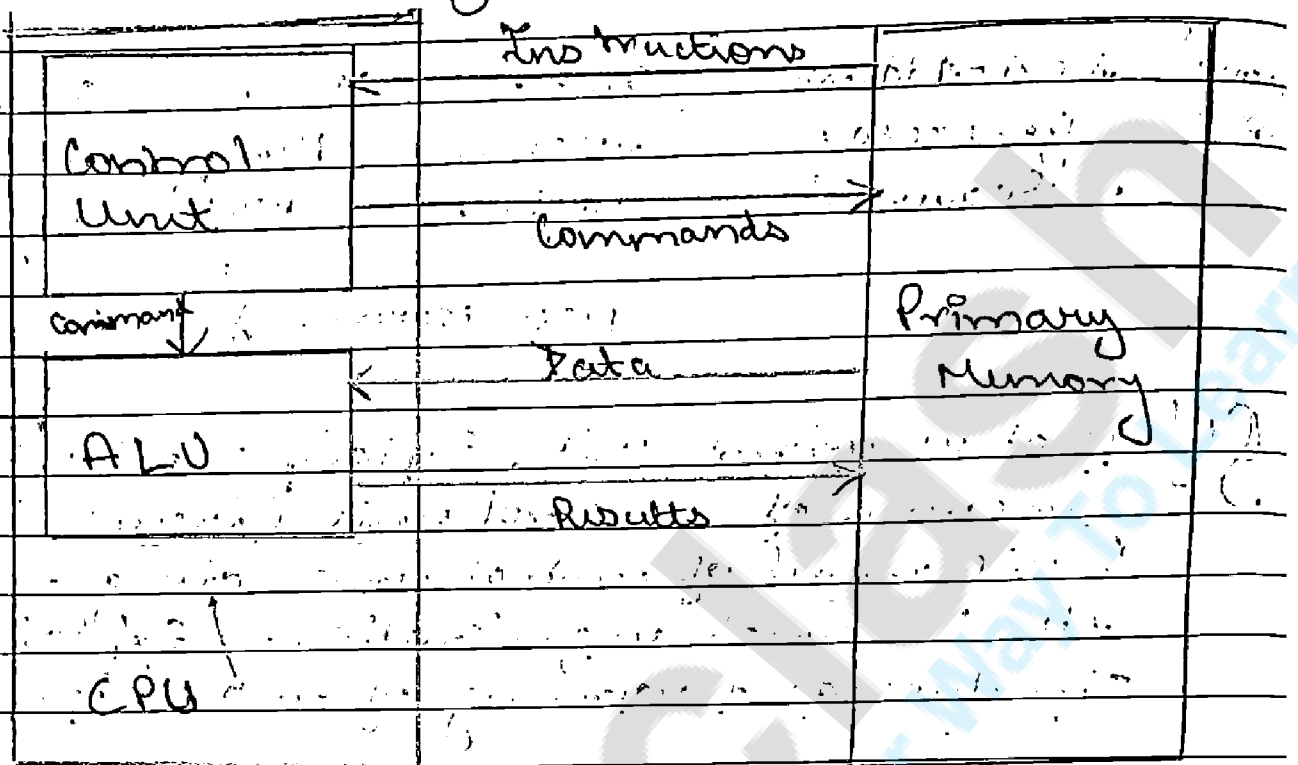 Instructions
Control
Unit
Commands
Command
Primary
Memory
Data
ALU
Results
CPU
clash
Way To Learn